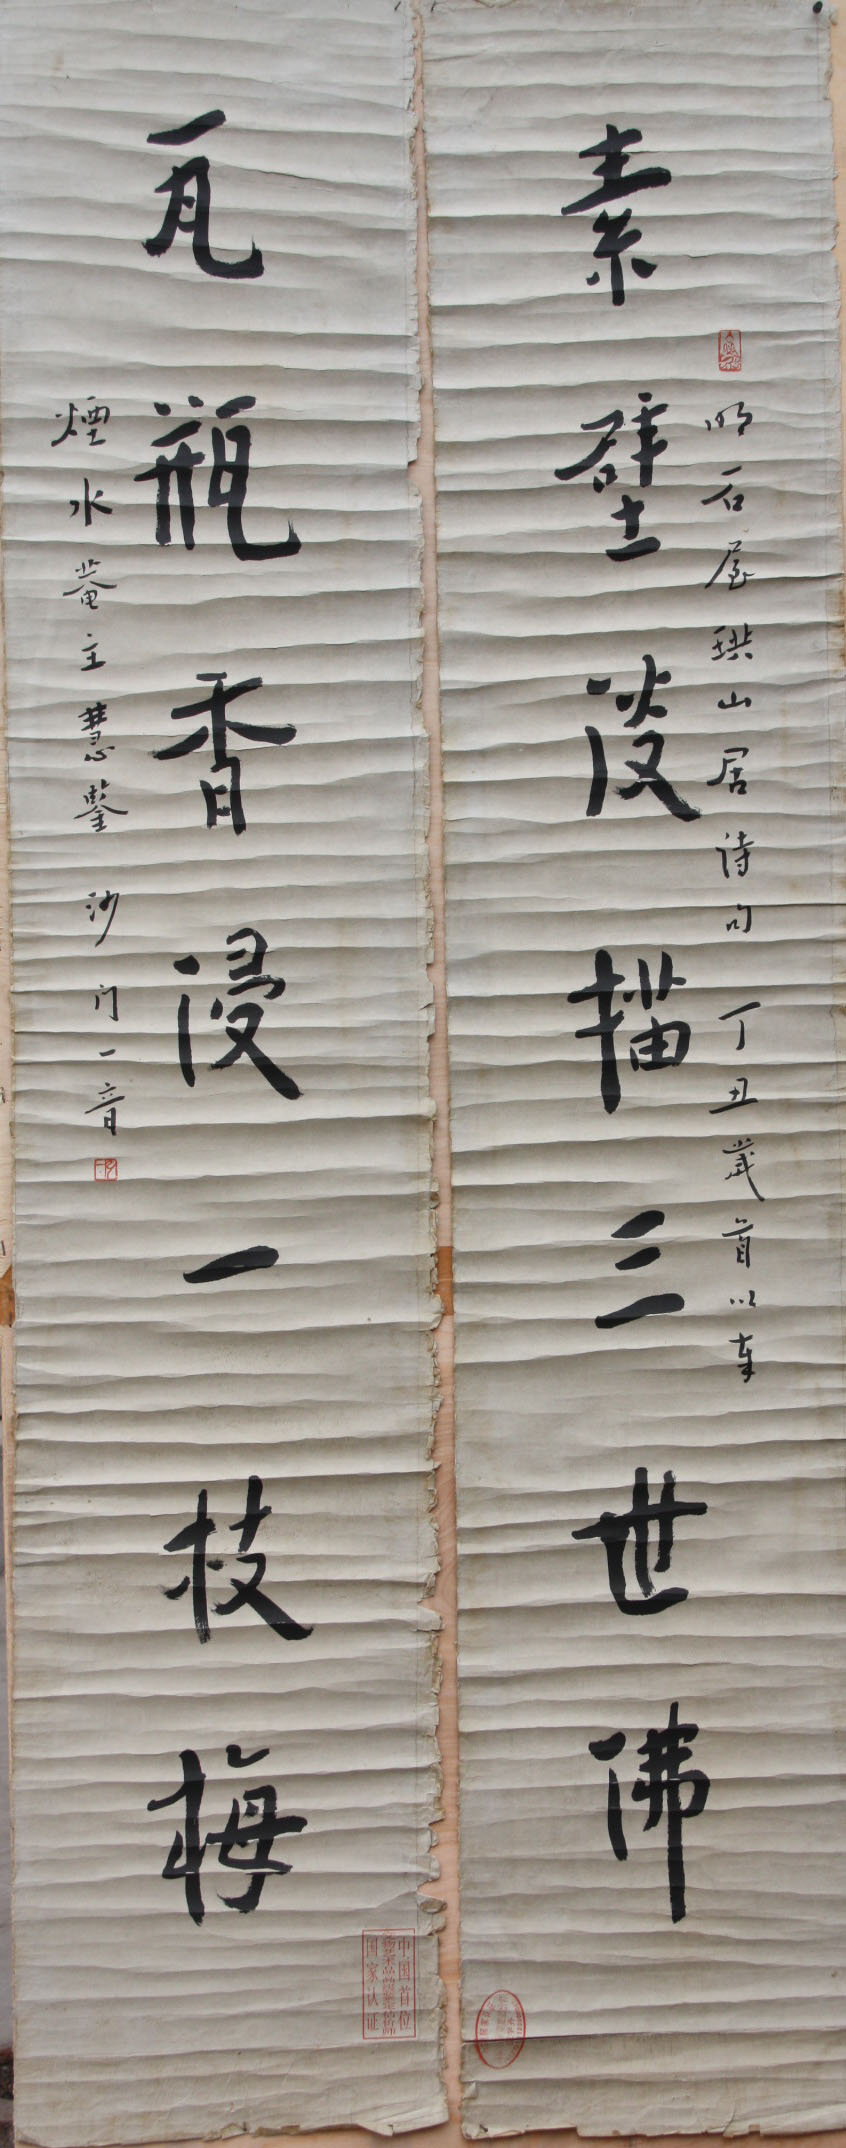 素壁淡描三世佛
明石屋珙山居诗句 丁丑歲首以奉
瓦瓶香浸一枝梅
煙水菴主慧鑒 沙门一音
中国首位
国家认证